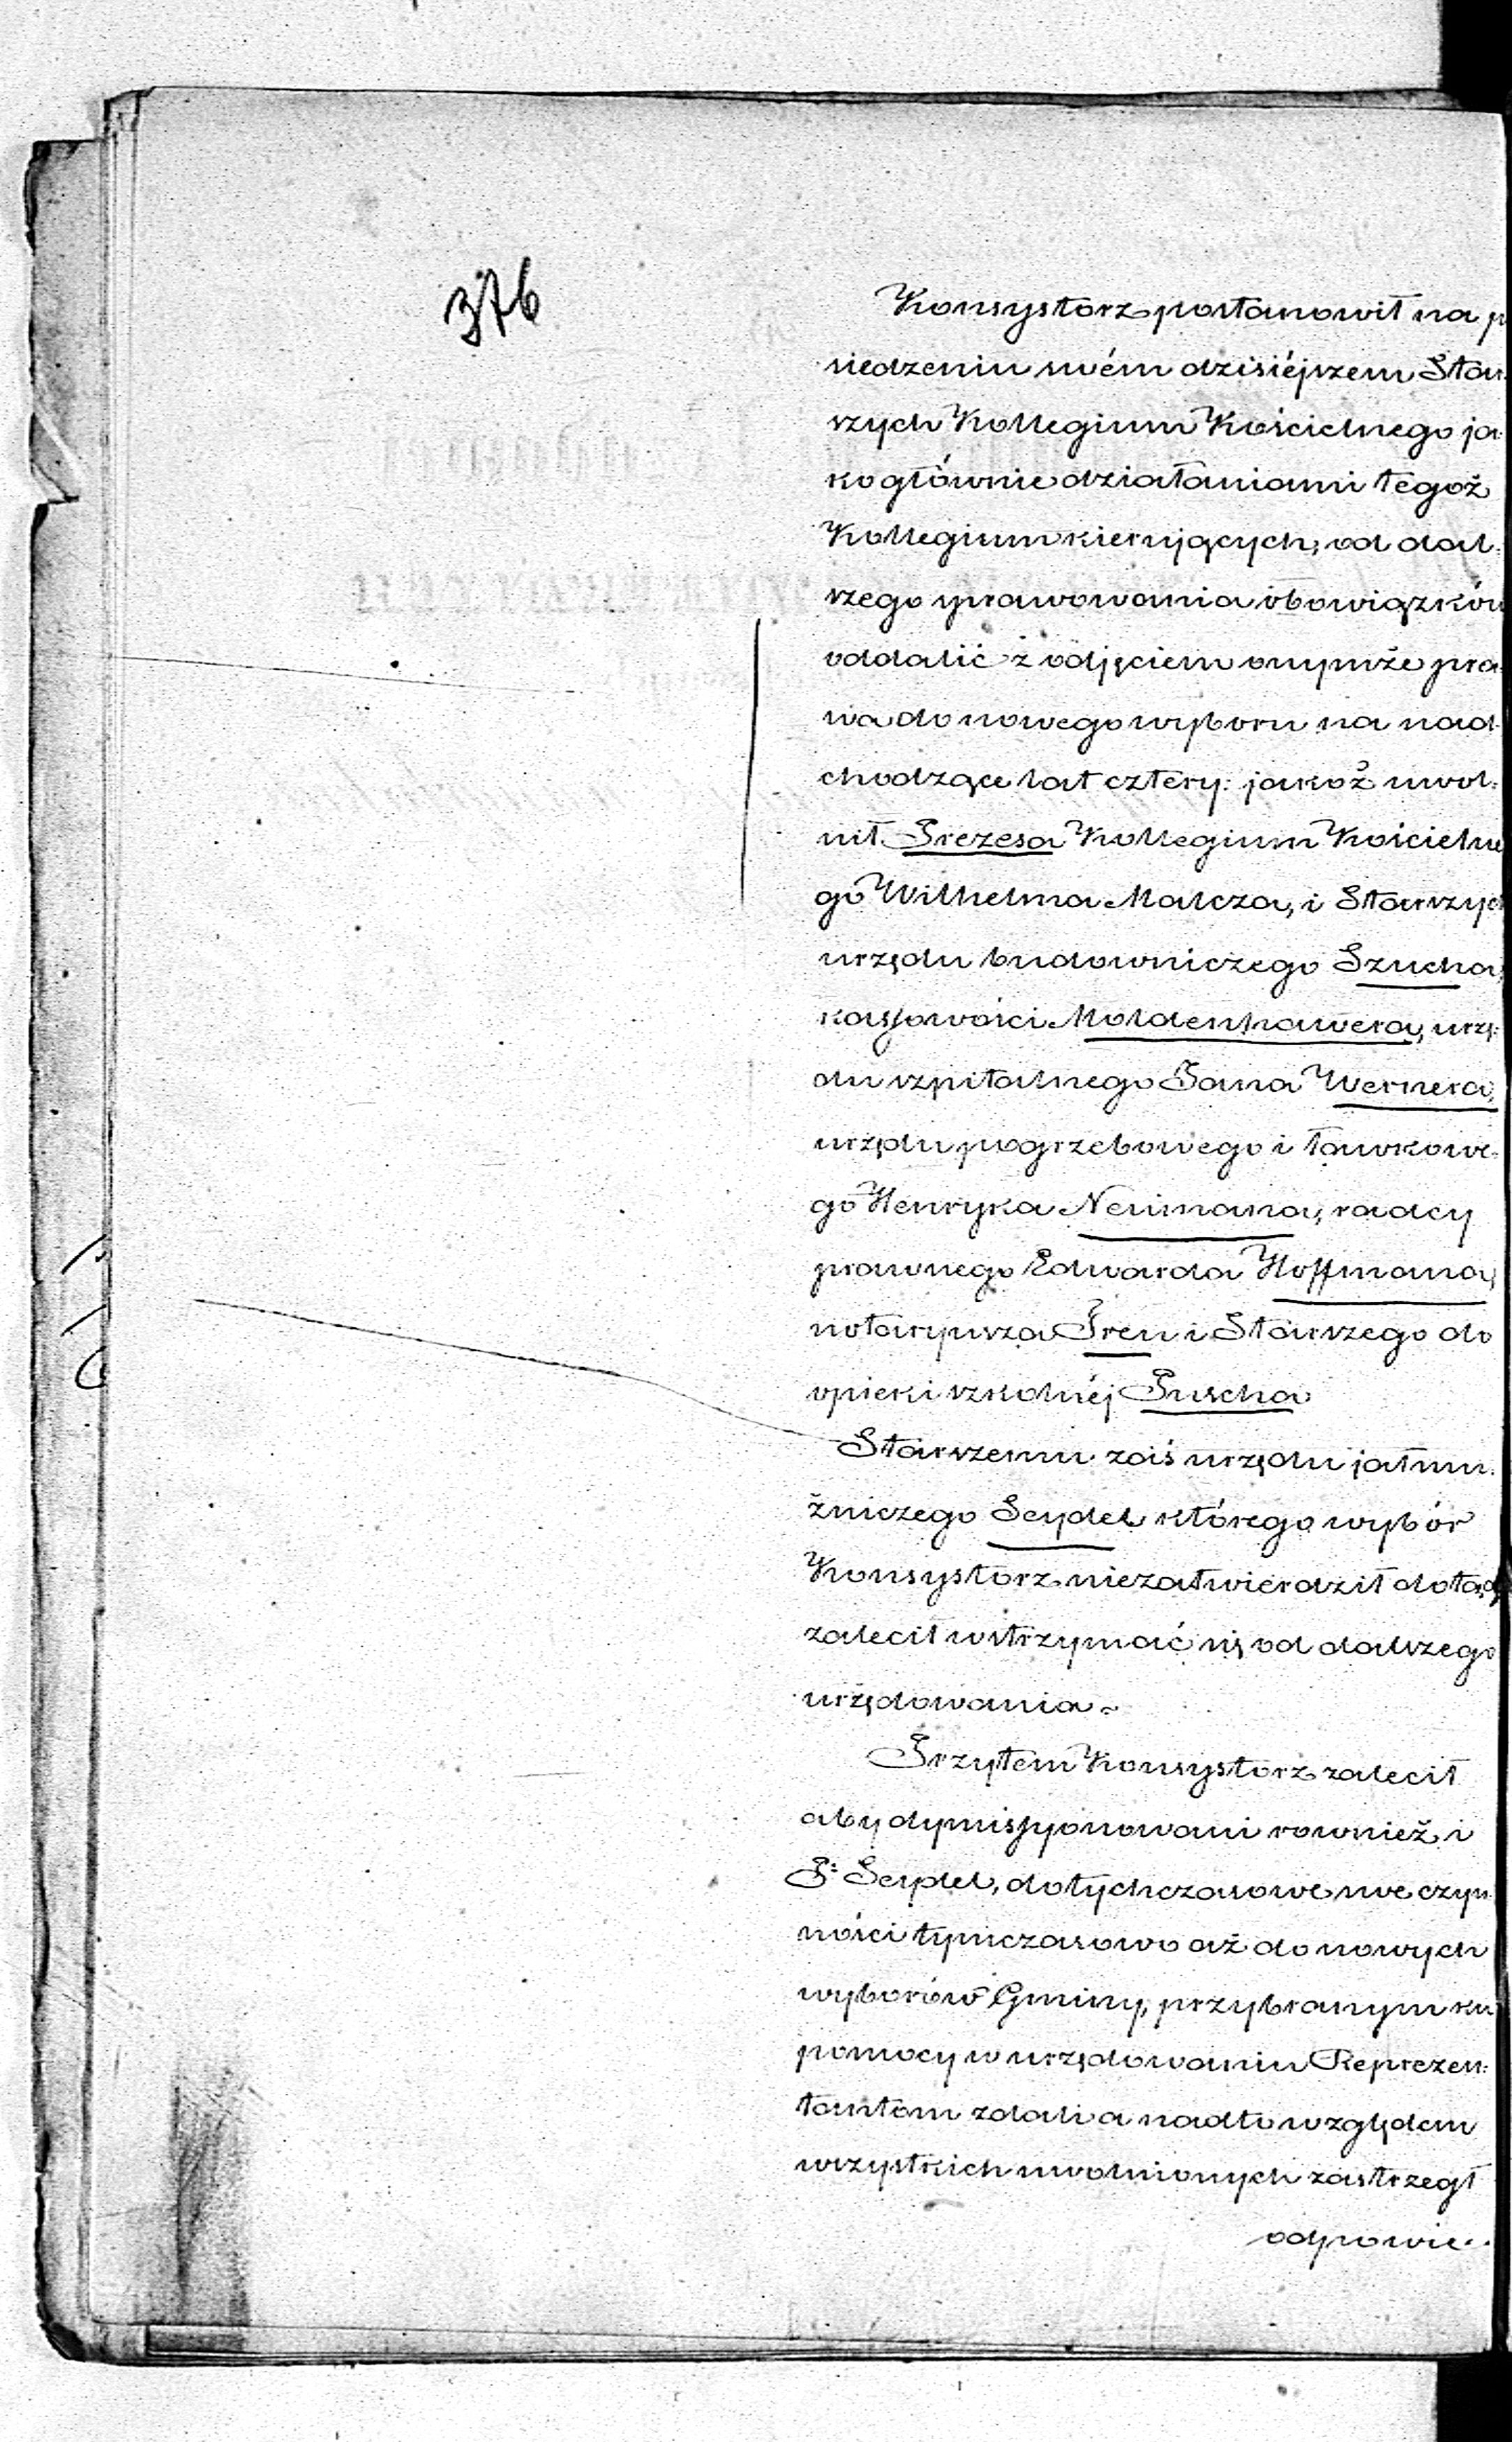 376
Konsystorz postanowił na p
siedzeniu swém dzisiéjszem Star
szych Kollegium Kościelnego ja-
ko głównie działaniami tegoż
Kollegium kierujących, od dal-
szego sprawowania obowiązków
oddalić z odjęciem onymże pra-
wa do nowego wyboru na nad-
chodzące lat cztery: jakoż uwol-
nił Prezesa Kollegium Kościelne
go Wilhelma Malcza, i Starszych
urzędu budowniczego Szucha,
kassowości Moldenhawera, urzę-
du szpitalnego Jana Wernera,
urzędu pogrzebowego i ławkowe-
go Henryka Neumana, radcy
prawnego Edwarda Hoffmana,
notaryusza Jren i Starszego do
opieki szkolnéj Puscha
Starszemu zaś urzędu jałmu-
żniczego Seydel którego wybór
Konsystorz niezatwierdził dotąd,
zalecił wstrzymać się od dalszego
urzędowania.
Przytem Konsystorz zalecił
aby dymissyonowani rownież i
P: Seydel, dotychczasowe swe czyn
ności tymczasowo aż do nowych
wyborów Gminy, przybranym ku
pomocy w urzędowaniu Reprezen-
tantom zdali a nadto względem
wszystkich uwolnionych zastrzegł
odpowie-